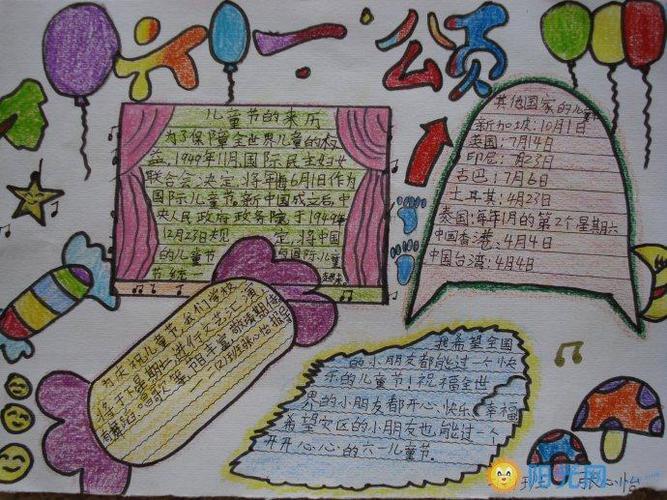 六一颂
儿童节的来历
为了保障全世界儿童的权
益,1949年11月,国际民主妇女
联合会决定,将每年6月1日作为
国际儿童节。新中国成立后,中
央人民政府政务院于1949年
12月23日规定,将中国
的儿童节与国际儿童
节统一
其他国家的儿童
新加坡:10月1日
美国:7月14日
印尼:7月23日
古巴:7月6日
土耳其:4月23日
泰国:每年1月的第2个星期六
中国香港:4月4日
中国台湾:4月4日
为庆祝儿童节,我们学校
将于下星期二进行文艺汇演
有舞蹈、唱歌等,节目丰富,敬请期待
我希望全国
的小朋友都能过一个快
乐的儿童节!祝福全世
界的小朋友都开心、快乐、幸福
希望灾区的小朋友也能过一个
开开心心的六一儿童节.
阳光网